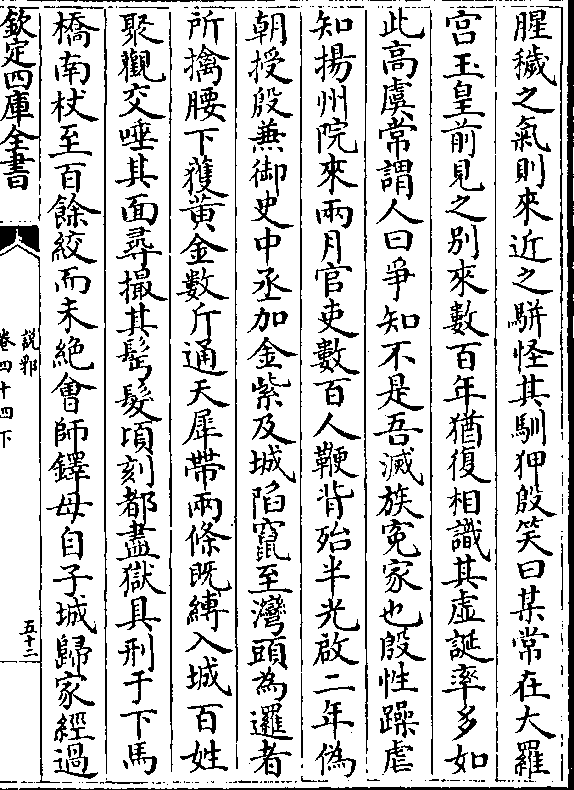 腥穢之氣則來近之駢怪其馴狎殷笑曰某常在大羅
宫玉皇前見之别來數百年猶復相識其虚誕率多如
此高虞常謂人曰爭知不是吾滅族寃家也殷性躁虐
知揚州院來兩月官吏數百人鞭背殆半光啟二年偽
朝授殷兼御史中丞加金紫及城陷竄至灣頭為邏者
所擒腰下獲黄金數斤通天犀帶兩條既縛入城百姓
聚觀交唾其面㝷撮其髩髮頃刻都盡獄具刑于下馬
橋南杖至百餘絞而未絶會師鐸母自子城歸家經過
欽定四庫全書
說郛
卷四十四下
五十二